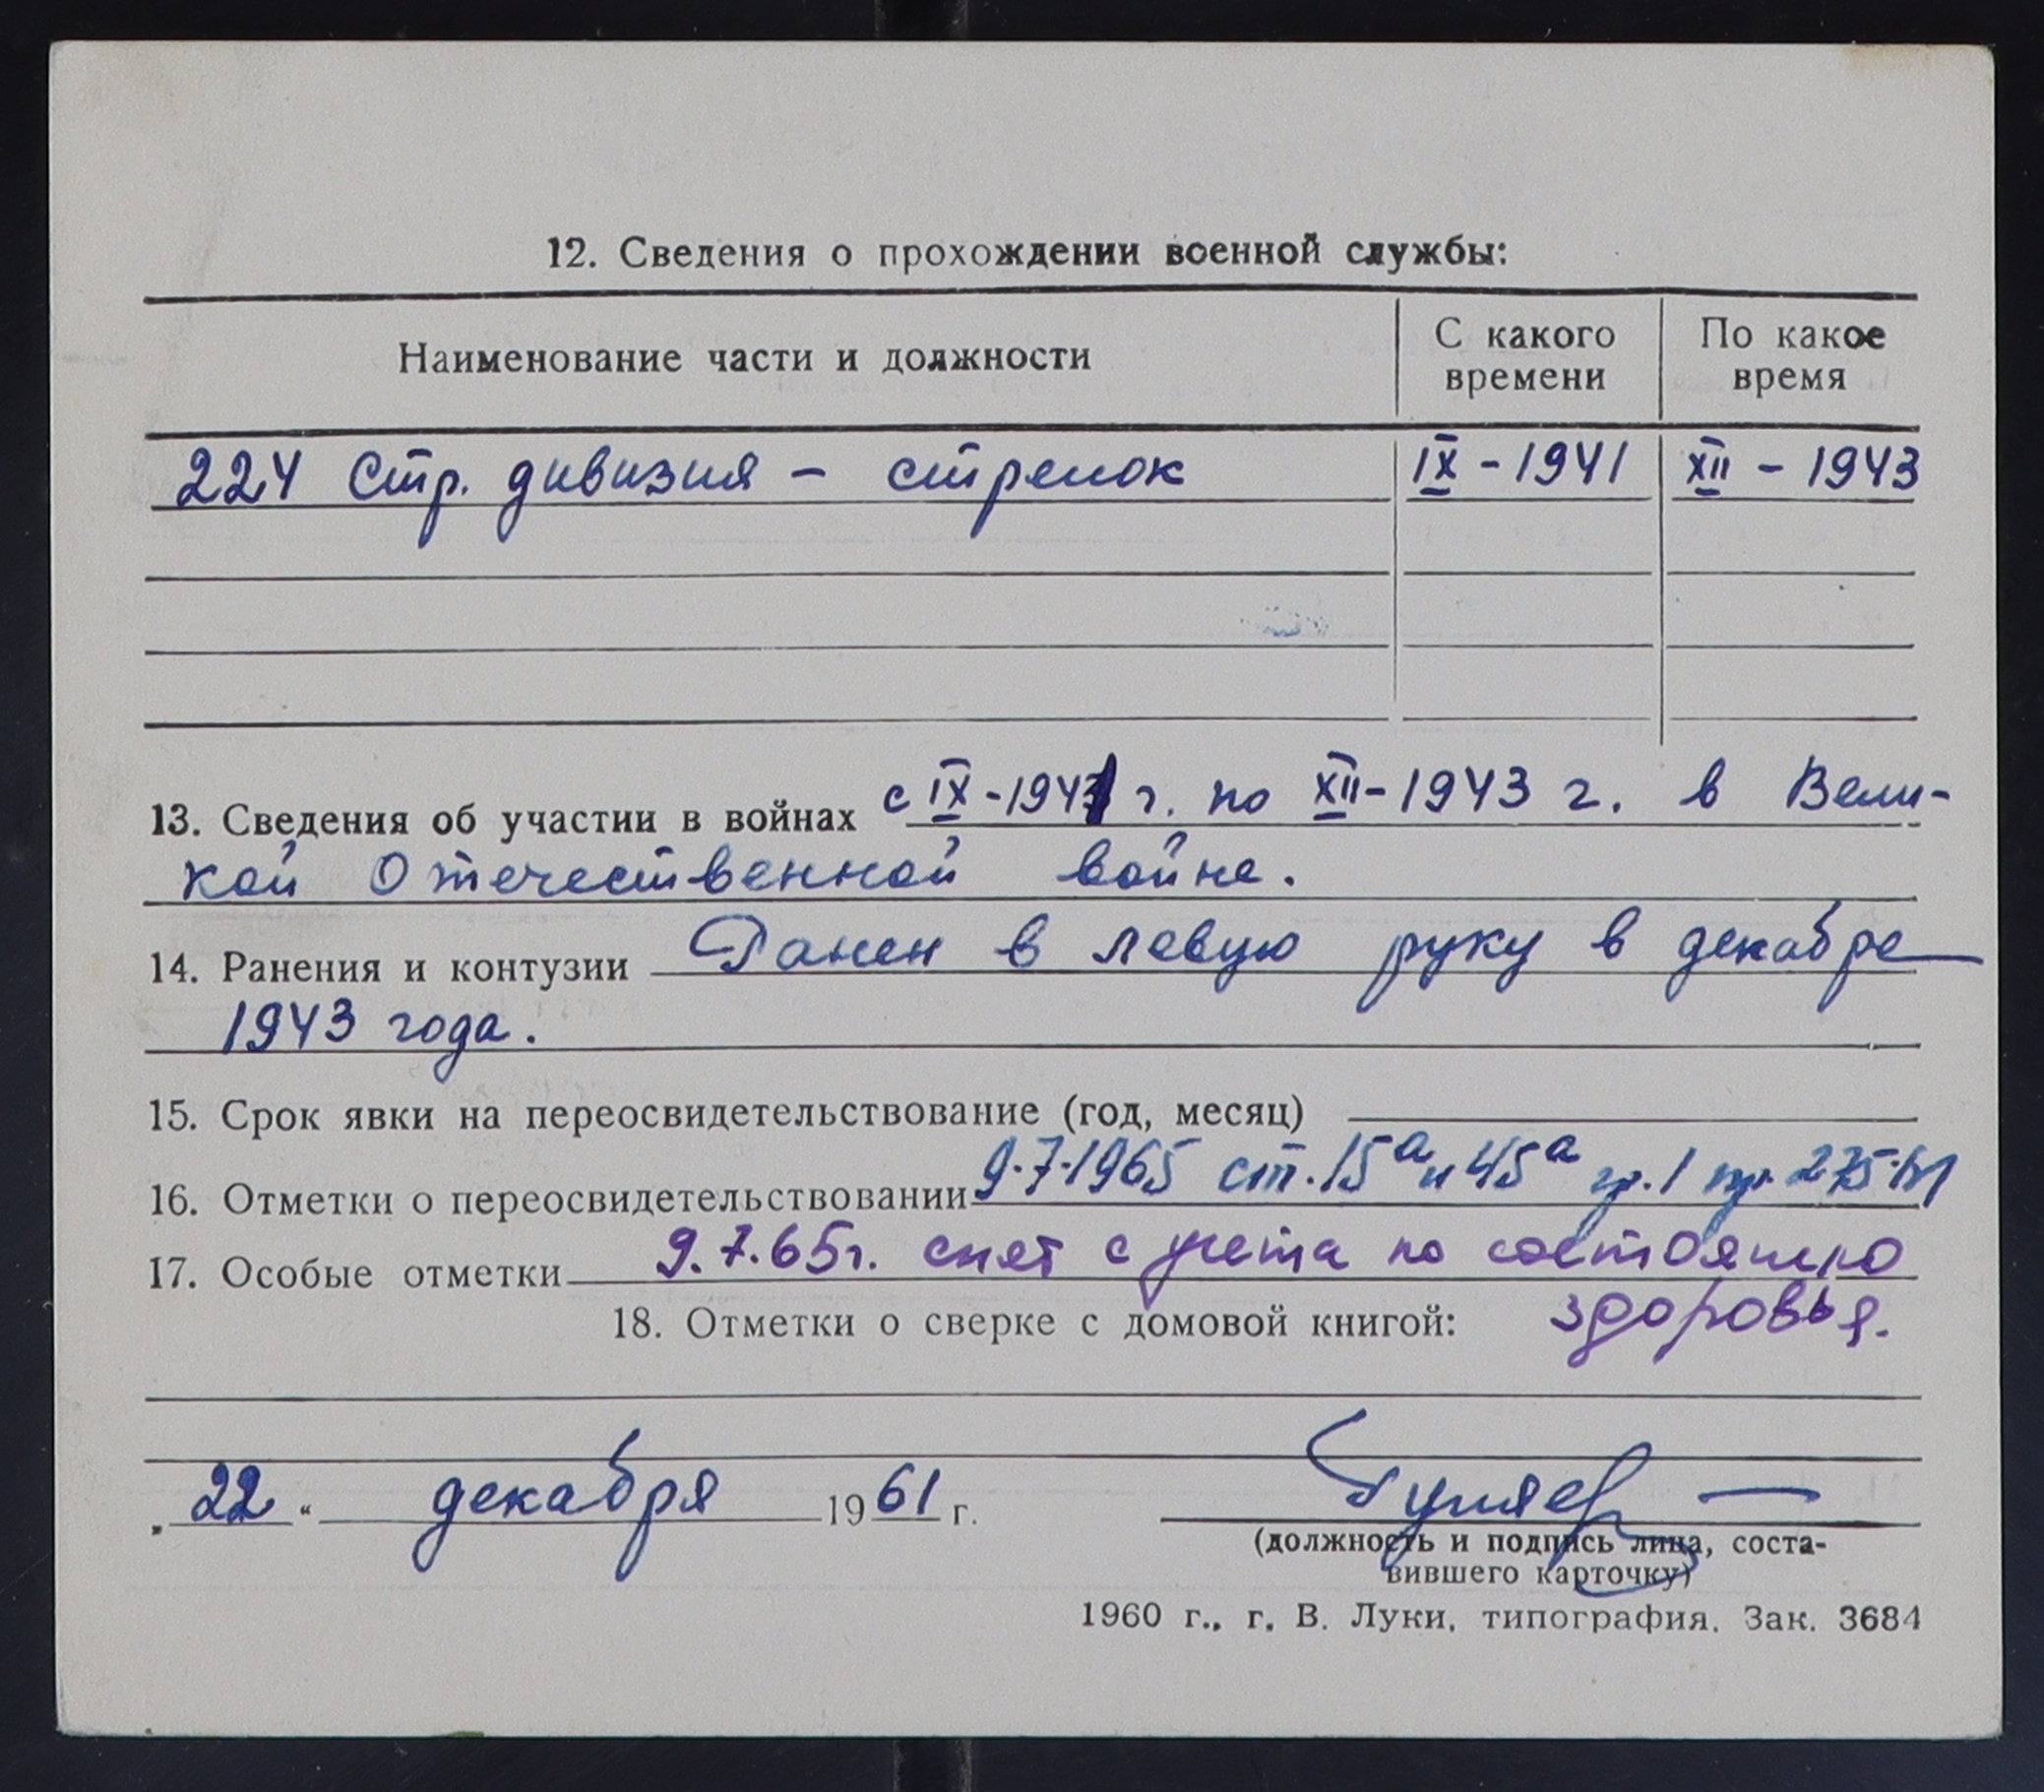 12. Сведения о прохождении военной службы:
Наименование части и должности
С какого времени
По какое время
224 Стр. дивизия – стрелок IX - 1941 XII - 1943
13. Сведения об участии в войнах с IX-1941 г. по XII-1943 г. в Вели-
кой Отечественной войне.
14. Ранения и контузии Ранен в левую руку в декабре
1943 года.
15. Срок явки на переосвидетельствование (год, месяц)
16. Отметки о переосвидетельствовании 9.7.1965 ст. 15а и 45а гр. 1 пр. 275-
17. Особые отметки 9.7.65г. снят с учета по состоянию
здоровья.
18. Отметки о сверке с домовой книгой:
„22“ декабря 1961 г.
(должность и подпись лица, соста-
вившего карточку)
1960 г., г. В. Луки, типография. Зак. 3684